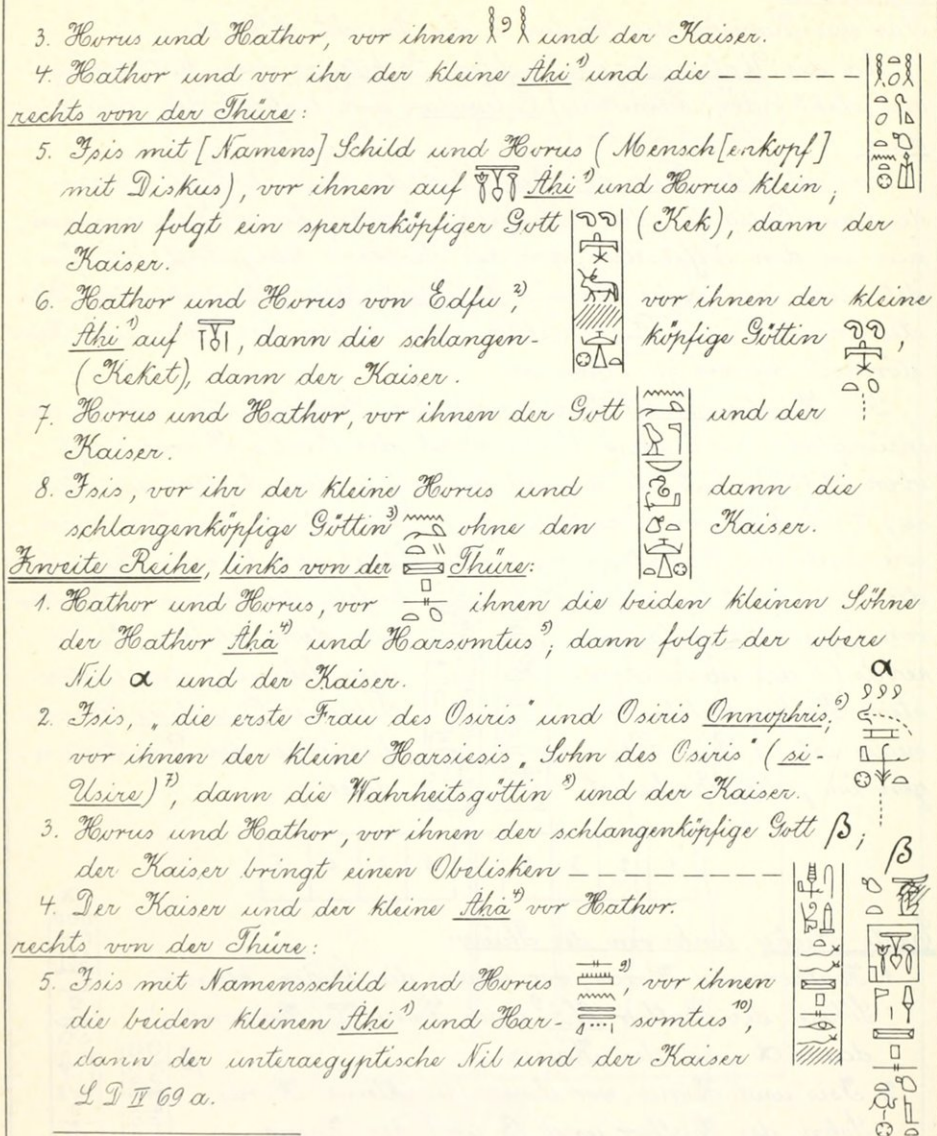 3. Horus und Hathor, vor ihnen und der Kaiser.
4. Hathor und vor ihr der kleine Ȧhi¹⁾ und die – – – – – –
rechts von der Thüre:
5. Isis mit [Namens] Schild und Horus (Mensch[enkopf]
mit Diskus), vor ihnen auf Ȧhi¹⁾ und Horus klein,
dann folgt ein sperberköpfiger Gott (Kek), dann der
Kaiser.
6. Hathor und Horus von Edfu,²⁾ vor ihnen der kleine
Ȧhi¹⁾ auf , dann die schlangen- köpfige Göttin ,
(Keket), dann der Kaiser.
7. Horus und Hathor, vor ihnen der Gott und der
Kaiser.
8. Isis, vor ihr der kleine Horus und dann die
schlangenköpfige Göttin³⁾ ohne den Kaiser.
Zweite Reihe, links von der Thüre:
1. Hathor und Horus, vor ihnen die beiden kleinen Söhne
der Hathor Ȧhȧ⁴⁾ und Harsomtus⁵⁾, dann folgt der obere
Nil α und der Kaiser.
α
2. Isis, „die erste Frau des Osiris“ und Osiris Onnophris,⁶⁾
vor ihnen der kleine Harsiesis „Sohn des Osiris“ (si-
Usire)⁷⁾, dann die Wahrheitsgöttin⁸⁾ und der Kaiser.
3. Horus und Hathor, vor ihnen der schlangenköpfige Gott β,
β
der Kaiser bringt einen Obelisken – – – – – – – – –
4. Der Kaiser und der kleine Ȧhȧ⁴⁾ vor Hathor.
rechts von der Thüre:
5. Isis mit Namensschild und Horus ⁹⁾, vor ihnen
die beiden kleinen Ȧhi¹⁾ und Har- somtus¹⁰⁾,
dann der unteraegyptische Nil und der Kaiser
L D IV 69 a.